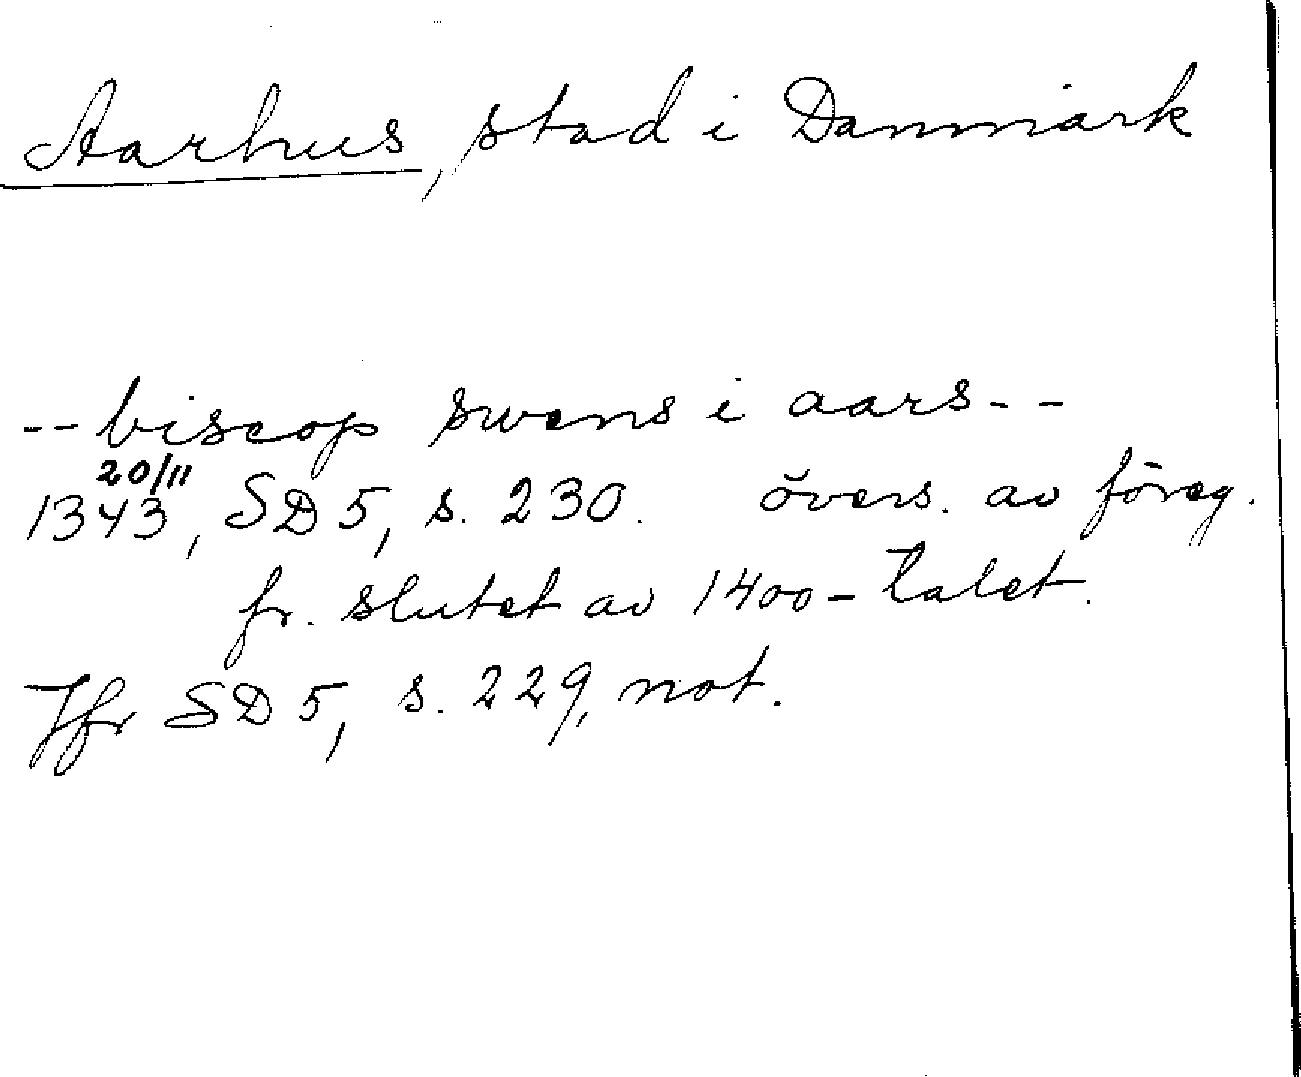 Aarhus, stad i Danmark
-- biscop swens i aars--
20/11
1343, SD 5, s. 230. övers. av föreg.
fr. slutet av 1400-talet.
Jfr SD 5, s. 229, not.